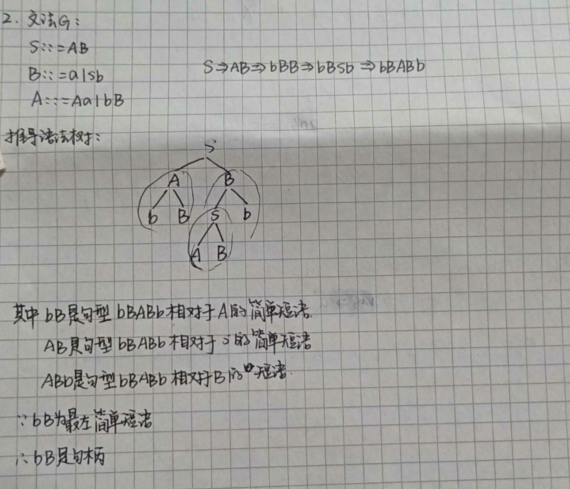 2. 文法G:
S::=AB
B::=a|Sb
A::=Aa|bB
S⇒AB⇒bBB⇒bBSb⇒bBABb
推导语法树:
S
A B
b B S b
A B
其中 bB是句型 bBABb 相对于A的简单短语.
AB是句型 bBABb 相对于S的简单短语
ABb是句型 bBABb 相对于B的 短语.
∵ bB为最左简单短语
∴ bB是句柄